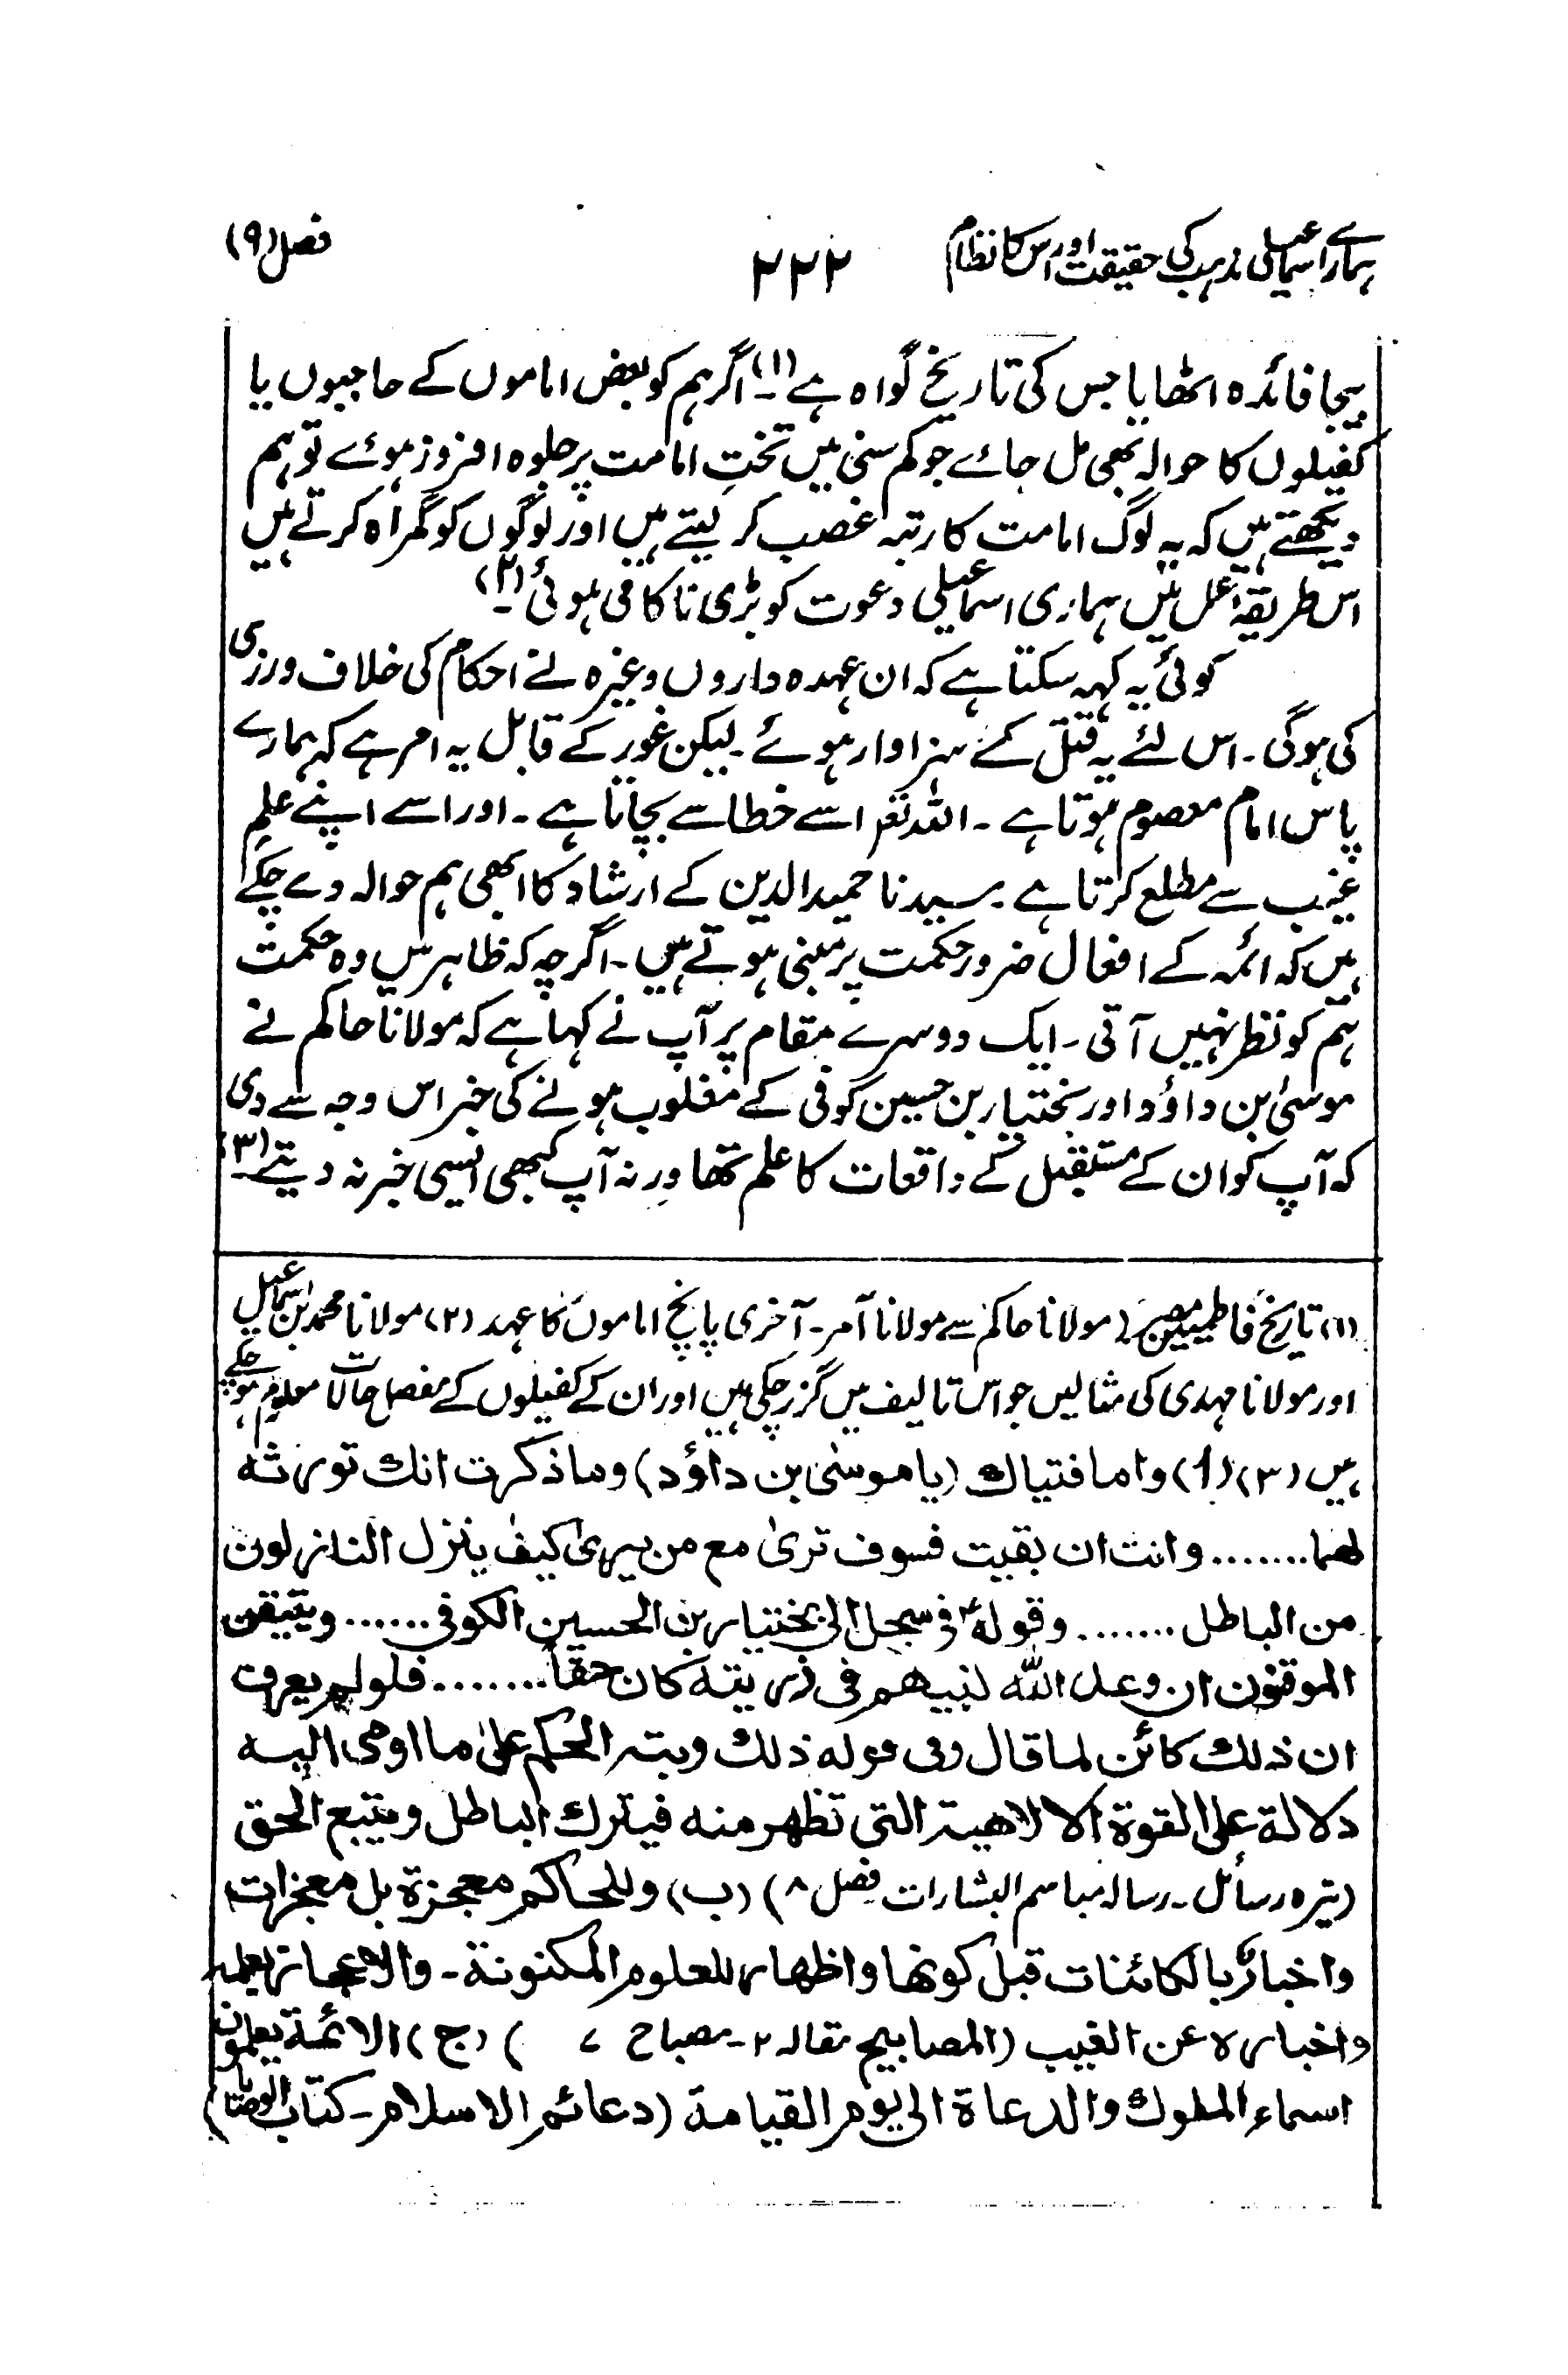 ہمارے اسماعیلی مذہب کی حقیقت اور اس کا نظام ۲۲۲ فصل (۹)
بیجا فائدہ اٹھایا جس کی تاریخ گواہ ہے (۱)۔ اگر ہم کو بعض اماموں کے حاجبوں یا
کفیلوں کا حوالہ بھی مل جائے جو کم سنی میں تختِ امامت پر جلوہ افروز ہوئے تو ہم
دیکھتے ہیں کہ یہ لوگ امامت کا رتبہ غصب کر لیتے ہیں اور لوگوں کو گمراہ کرتے ہیں
اس طریقۂ عمل میں ہماری اسماعیلی دعوت کو بڑی ناکامی ہوئی (۲)۔
کوئی یہ کہہ سکتا ہے کہ ان عہدہ داروں وغیرہ نے احکام کی خلاف ورزی
کی ہوگی۔ اس لئے یہ قتل کے سزاوار ہوئے۔ لیکن غور کے قابل یہ امر ہے کہ ہمارے
پاس امام معصوم ہوتا ہے۔ اللہ تعہ اسے خطا سے بچاتا ہے۔ اور اسے اپنے علمِ
غیب سے مطلع کرتا ہے۔ سیدنا حمید الدین کے ارشاد کا ابھی ہم حوالہ دے چکے
ہیں کہ ائمہ کے افعال ضرور حکمت پر مبنی ہوتے ہیں۔ اگرچہ کہ ظاہر میں وہ حکمت
ہم کو نظر نہیں آتی۔ ایک دوسرے مقام پر آپ نے کہا ہے کہ مولانا حاکم نے
موسیٰ بن داؤد اور بختیار بن حسین کوفی کے مغلوب ہونے کی خبر اس وجہ سے دی
کہ آپ کو ان کے مستقبل کے واقعات کا علم تھا ورنہ آپ کبھی ایسی خبر نہ دیتے۔ (۳)
(۱) تاریخ فاطمیین مصر (مولانا حاکم سے مولانا آمر۔ آخری پانچ اماموں کا عہد (۲) مولانا محمد بن اسماعیل
اور مولانا مہدی کی مثالیں جو اس تالیف میں گزر چکی ہیں اور ان کے کفیلوں کے مفصل حالات معلوم ہو چکے
ہیں (۳) (ا) واما فتیاك (یا موسیٰ بن داؤد) وما ذکرت انك تورثه
لهما ........ وانت ان بقیت فسوف تریٰ مع من یریٰ کیف ینزل النازلون
من الباطل ........ وقوله فی سجل الی بختیار بن الحسین الکوفی ...... ویتیقن
الموقنون ان وعد الله لنبیهم فی ذریته کان حقاً ........ فلو لم یعرف
ان ذلك کائن لما قال وفی قوله ذلك وبته الحکم علیٰ ما اوحی الیه
دلالة علی القوة الالاهیة التی تظهر منه فیترك الباطل ویتبع الحق
(تیرہ رسائل۔ رسالہ مباسم البشارات فصل ۸) (ب) وللحاکم معجزة بل معجزات
واخبارٌ بالکائنات قبل کونها واظهار للعلوم المکنونة۔ والاعجاز بعلمه
واخباره عن الغیب (المصابیح مقالہ ۲۔ مصباح ۷ ) (ج) الائمة یعلمون
اسماء الملوك والدعاة الی یوم القیامة (دعائم الاسلام۔ کتاب الوصایا)